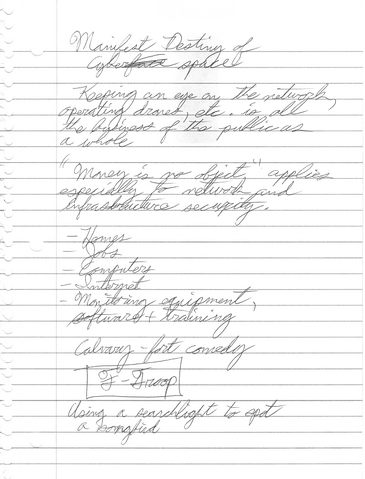 Manifest Destiny of
Cyber space
Keeping an eye on the network,
operating drones, etc. is all
the business of the public as
a whole
"Money is no object," applies
especially to network and
infrastructure security.
- Homes
- Jobs
- Computers
- Internet
- Monitoring equipment,
software + training
Calvary - fort comedy
F-Troop
Using a searchlight to spot
a songbird